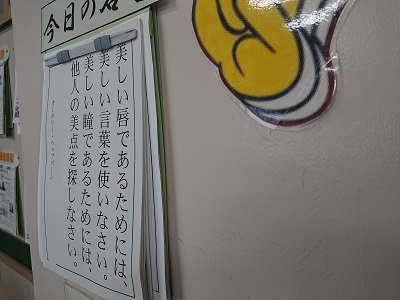 今日の名
美しい唇であるためには、
美しい言葉を使いなさい。
美しい瞳であるためには、
他人の美点を探しなさい。
オードリー・ヘップバーン